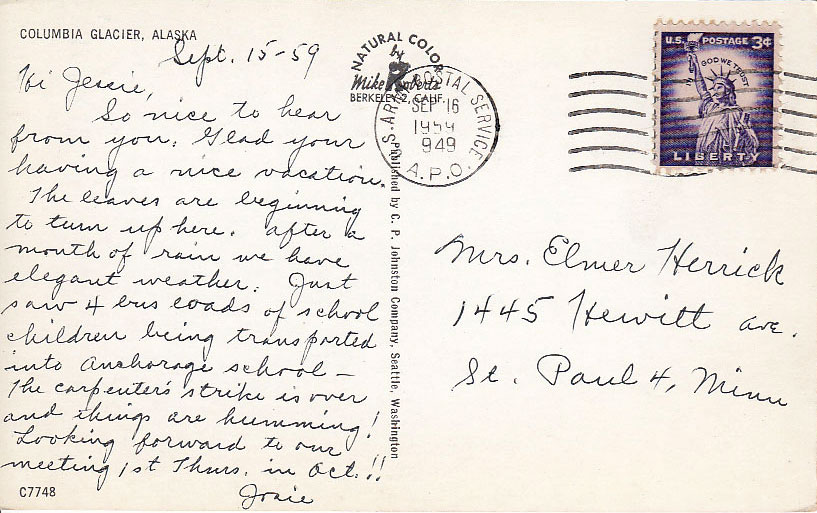 COLUMBIA GLACIER, ALASKA
Sept. 15-59
Hi Jessie,
So nice to hear
from you. Glad your
having a nice vacation.
The leaves are beginning
to turn up here. After a
month of rain we have
elegant weather. Just
saw 4 bus loads of school
children being transported
into Anchorage school –
The carpenter's strike is over
and things are humming!
Looking forward to our
meeting 1st Thurs. in Oct.!!
Josie
C7748
NATURAL COLOR
by
Mike Roberts
BERKELEY 2, CALIF.
Published by C. P. Johnston Company, Seattle, Washington
POSTAL SERVICE
SEP 16
1959
949
A.P.O.
U.S. POSTAGE 3¢
IN GOD WE TRUST
LIBERTY
Mrs. Elmer Herrick
1445 Hewitt Ave.
St. Paul 4, Minn